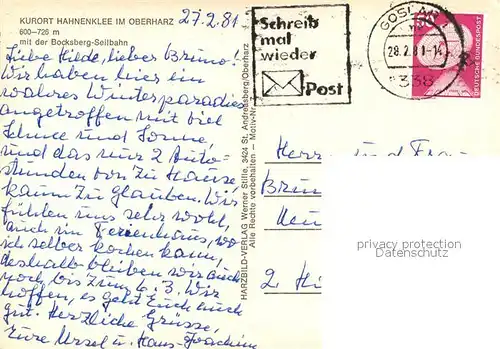 KURORT HAHNENKLEE IM OBERHARZ
600–726 m
mit der Bocksberg-Seilbahn
27.2.81
Liebe Hilde, lieber Bruno!
Wir haben hier ein
wahres Winterparadies
angetroffen mit viel
Schnee und Sonne,
und das nur 2 Auto-
stunden von zu Hause
kaum zu glauben. Wir
fühlen uns sehr wohl,
auch im Ferienhaus, wo
ich selber kochen kann,
deshalb bleiben wir auch
noch bis zum 6.3. Wir
hoffen, es geht Euch auch
gut. Herzliche Grüsse,
Eure Ursel u. Hans-Joachim
HARZBILD-VERLAG Werner Stille, 3424 St. Andreasberg/Oberharz
Alle Rechte vorbehalten — Motiv-Nr.
Schreib
mal
wieder
Post
GOSLAR
28.2.81-14
338
DEUTSCHE BUNDESPOST
Herrn und Frau
2
privacy protection
Datenschutz